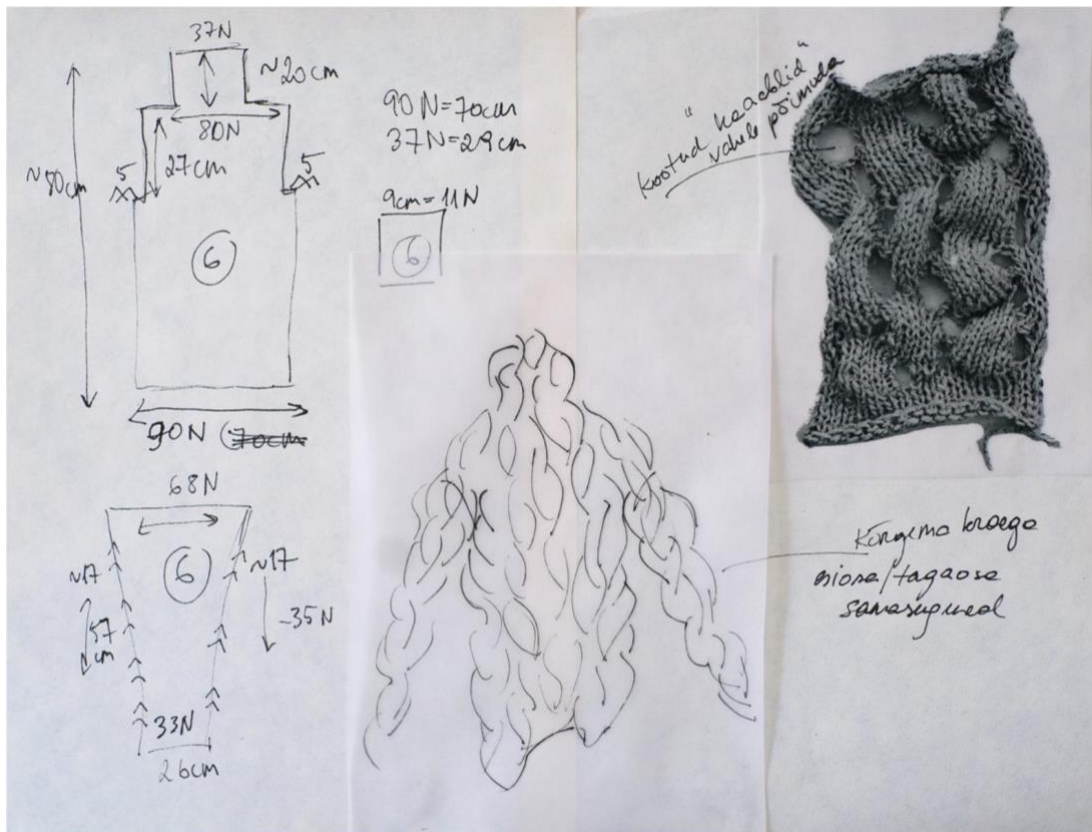 37N
~20cm
80N
27cm
~80cm
5
5
6
90N 70cm
90N=70cm
37N=29cm
9cm=11N
6
68N
6
~17
~17
57
cm
-35N
33N
26cm
kootud "kaablid"
vahele põimuda
Kõrgema kraega
esiosa/tagaosa
samasugused